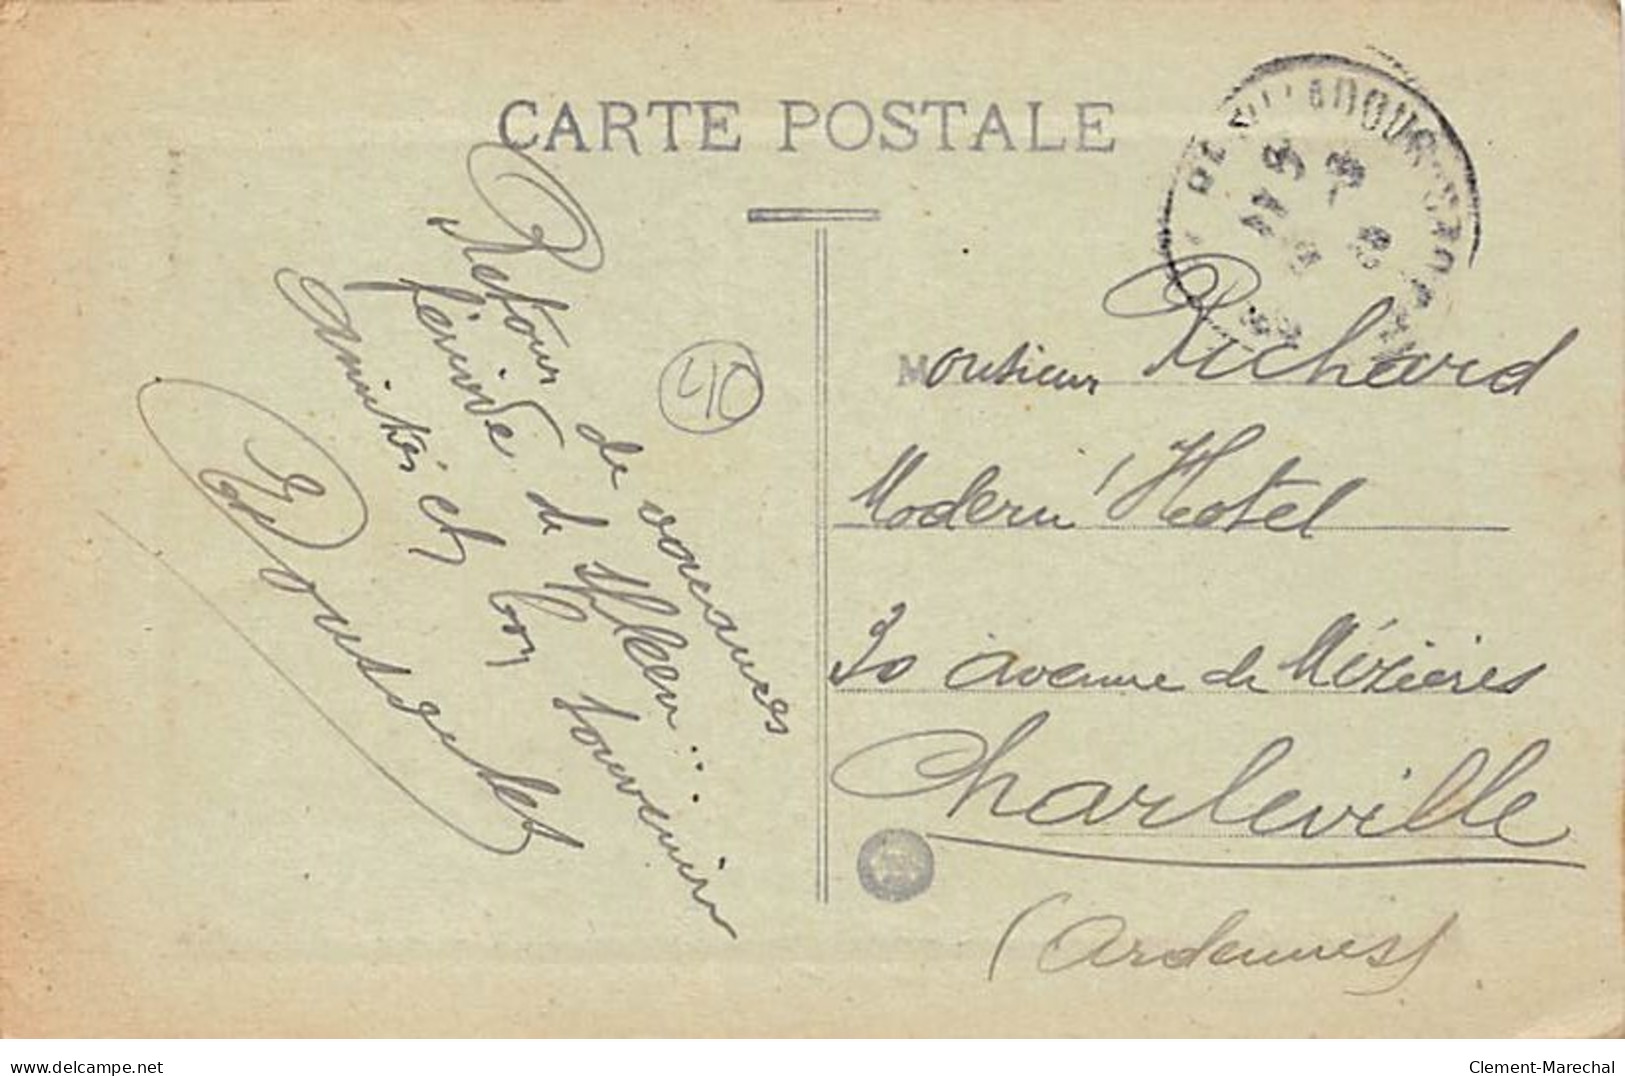 CARTE POSTALE
Retour de vacances
férivde de
amitiés et bon souvenir
40
Monsieur Richard
Modern' Hotel
30 avenue de Mézières
Charleville
(Ardennes)
www.delcampe.net
Clement-Marechal